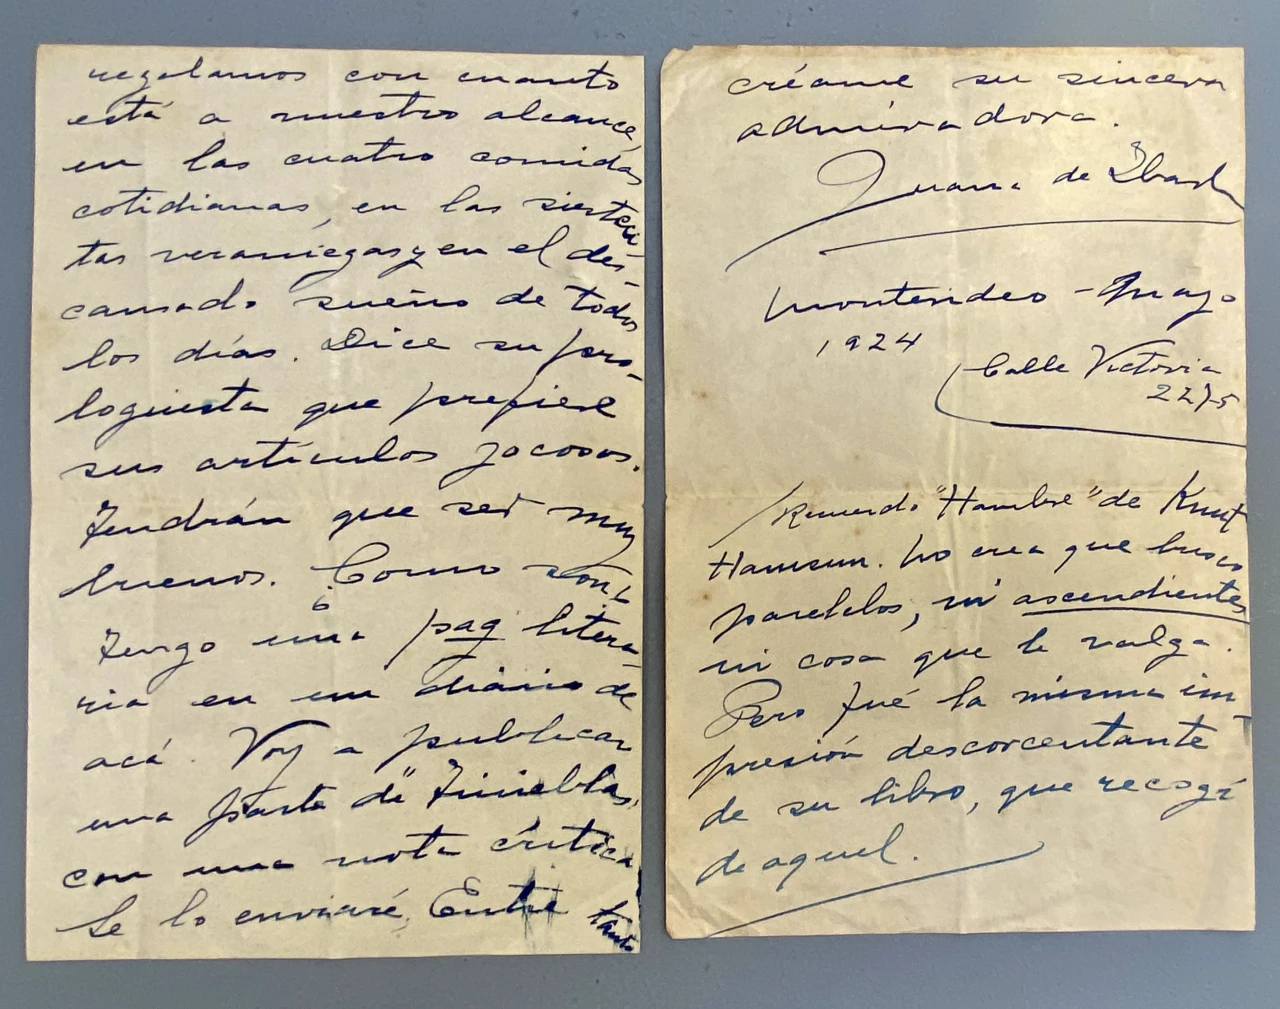 regalamos con cuanto
está a nuestro alcance
en las cuatro comidas
cotidianas, en las siesteci-
tas veraniegas y en el des-
cansado sueño de todos
los días. Dice su pro-
loguista que prefiere
sus artículos jocosos.
Tendrán que ser muy
buenos. ¿Como son?
Tengo una pag litera-
ria en un diario de
acá. Voy a publicar
una parte de "Tinieblas,
con una nota crítica
Se lo enviaré. Entre tanto
créame su sincera
admiradora.
Juana de Ibar
Montevideo - Mayo
1924
Calle Victoria
2275
Recuerdo "Hambre" de Knut
Hamsun. No crea que busco
paralelos, ni ascendientes
ni cosa que le valga.
Pero fué la misma im
presión desconcertante
de su libro, que recogí
de aquel.